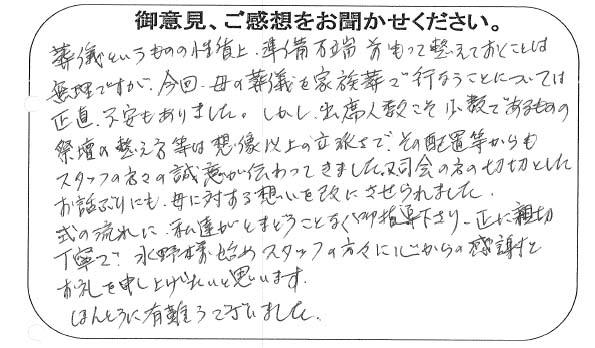 御意見、ご感想をお聞かせください。
葬儀というものの性質上、準備万端前もって整えておくことは
無理ですが、今回、母の葬儀を家族葬で行なうことについては
正直、不安もありました。しかし、出席人数こそ少数であるものの
祭壇の整え方等は想像以上の立派さで、その配置等からも
スタッフの方々の誠意が伝わってきました。又司会の方の切切とした
お話ぶりにも、母に対する想いを改にさせられました。
式の流れに、私達がとまどうことなく御指導下さり、正に親切
丁寧で、水野様始めスタッフの方々に心からの感謝と
お礼を申し上げたいと思います。
ほんとうに有難うございました。